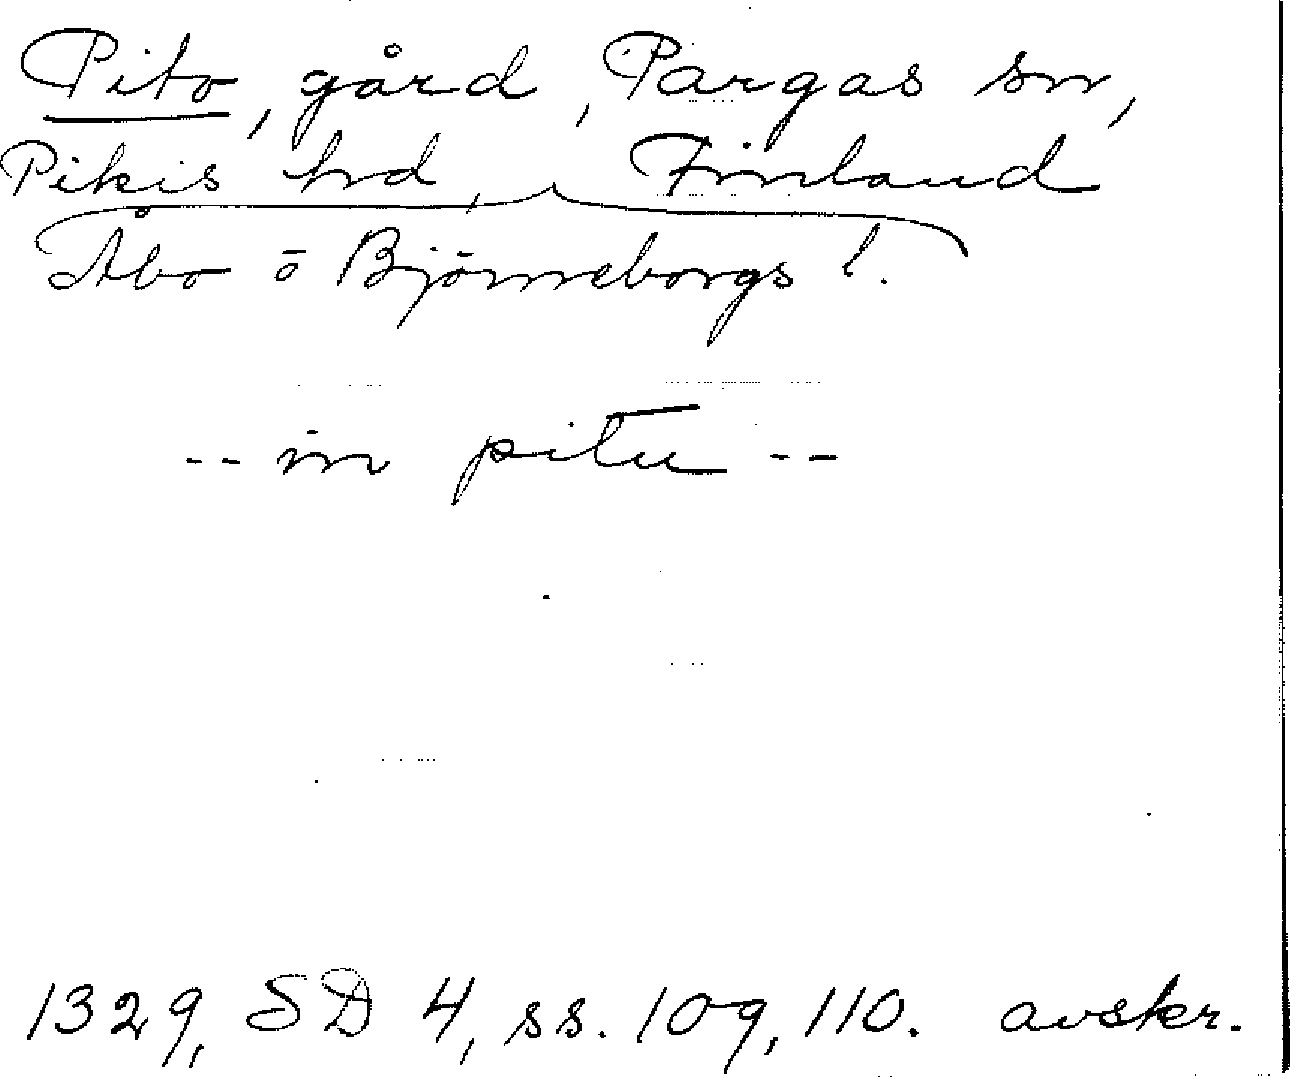 Pito, gård, Pargas sn,
Pikis hrd, Finland
Åbo o Björneborgs l.
-- in pitu --
1329, SD 4, ss. 109, 110. avskr.